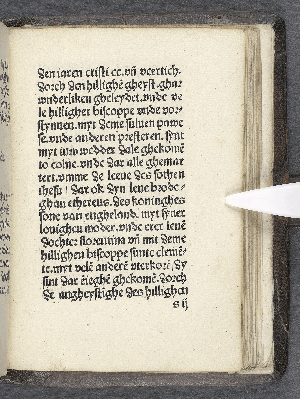 den iaren cristi cc. vñ veertich.
dorch den hillighẽ gheyst. ghar
wnderliken gheleydet. vnde ve
le hilligher biscoppe vnde vor-
stynnen. myt deme suluen pawe
se. vnde anderen presteren. synt
myt iuw wedder dale ghekomẽ
to colne. vnde dar alle ghemar
tert. vmme de leeue des sothen
ihesu. dar ok dyn leue brode-
ghau ethereus. des koninghes
sone van enghelãnd. myt syner
louighen moder. vnde erer ienẽ
dochter florautina vñ mit deme
hillighen biscoppe sunte clemẽ-
te. myt velẽ anderẽ vterkorẽ. dy
sint dar eieghẽ ghekomẽ. dorch
de angheystighe des hillighen
s ij